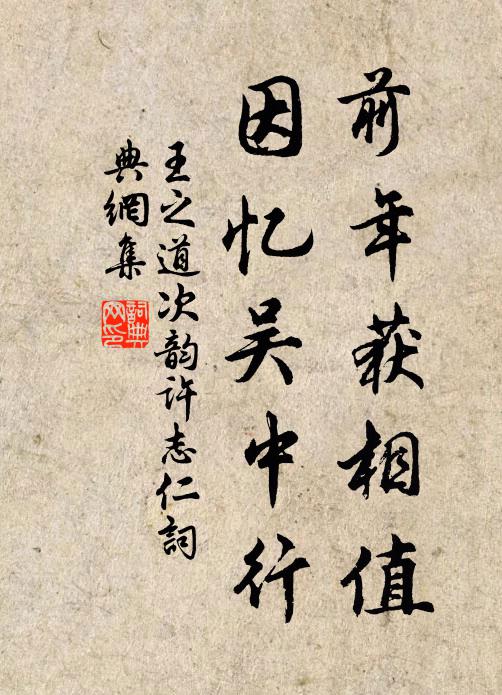 前年获相值
因忆吴中行
王之道次韵许志仁詞
典網集
詞典
网印